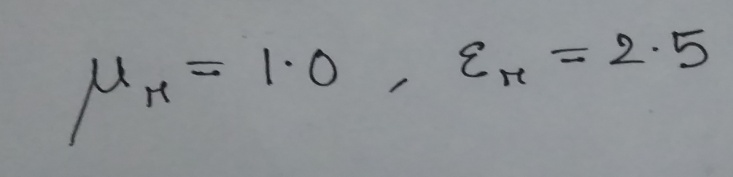 μᵣ = 1.0 , εᵣ = 2.5